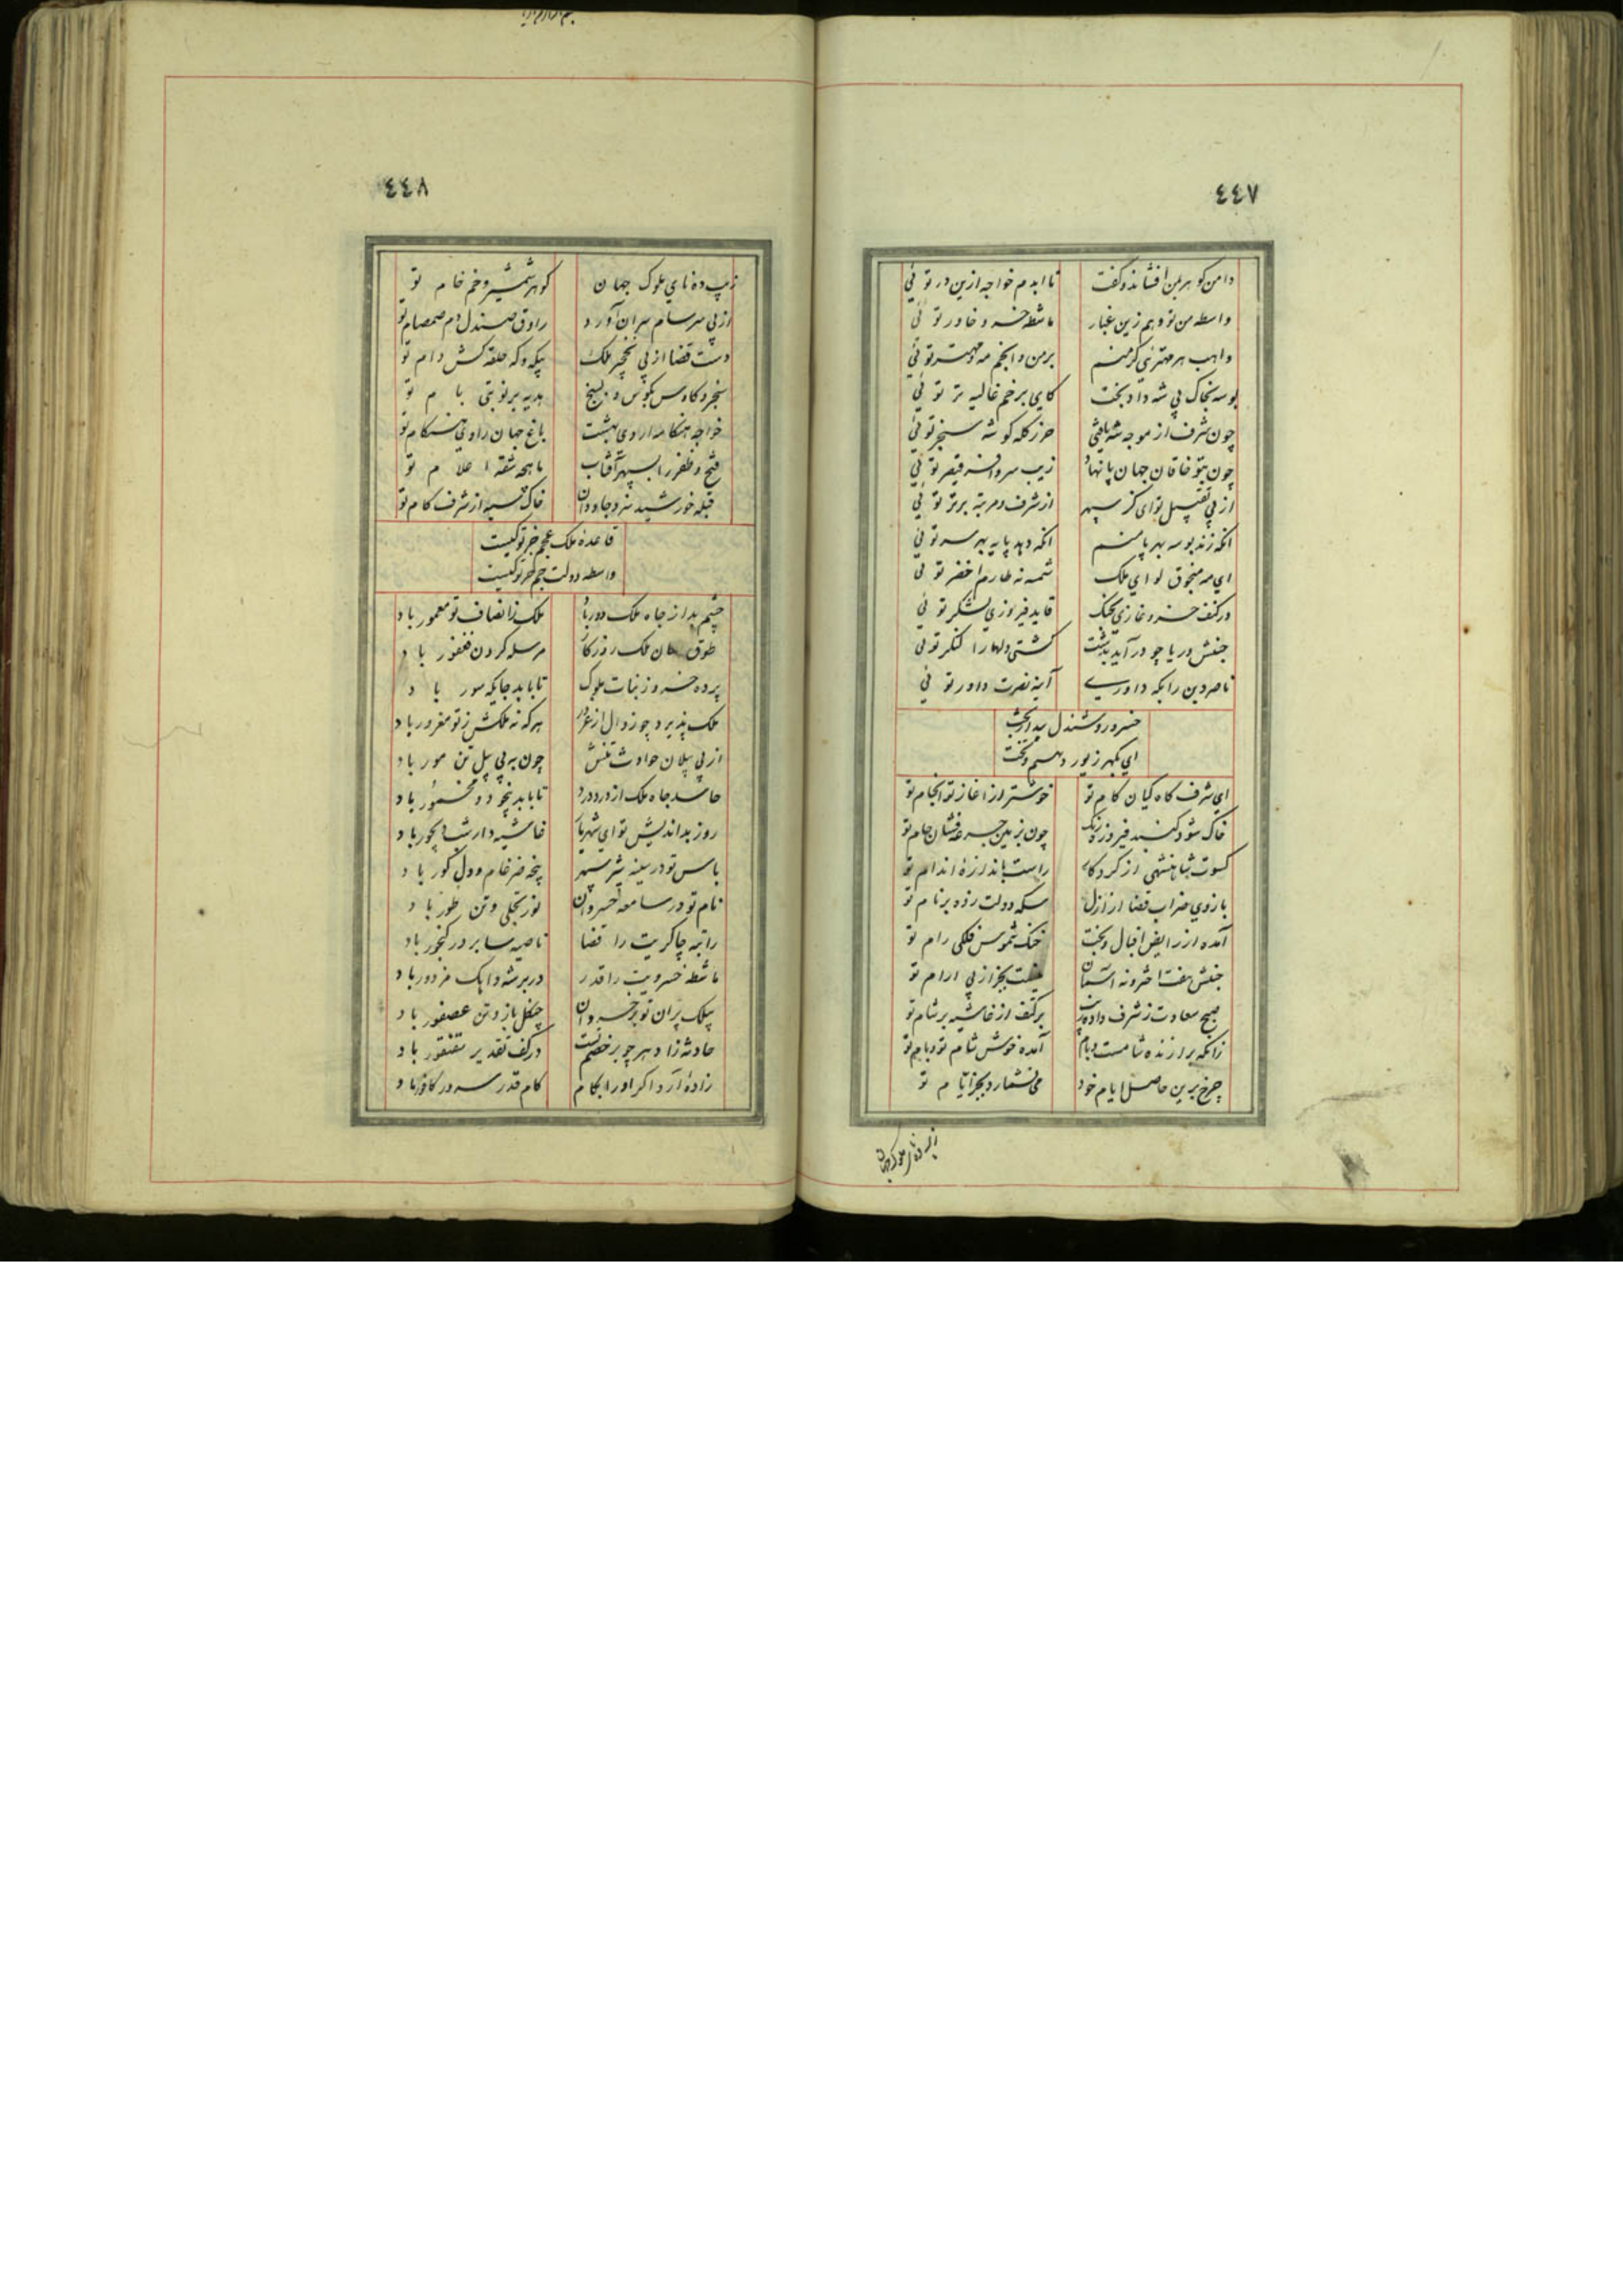 ٤٤٧
دامن گوهر بمن افشاند و گفت تا ابدم خواجه ازین در توئی
واسطه من تو و هم زین غبار ماشطه خسرو خاور توئی
واهب هر مهتری گر منم بر من و انجم مه و مهتر توئی
بوسه بخاک پی شه داد بخت کای برخم غالیه تر توئی
چون شرف از موجه شه یافتی حرز کله گوشه سنجر توئی
چون بتو خاقان جهان پا نهاد زیب سر و افسر قیصر توئی
از پی تقبیل تو ای کز سپهر از شرف و مرتبه برتر توئی
انکه زند بوسه بهر پا منم انکه دهد پایه بهر سر توئی
ای مه منجوق لوای ملک شمسه نه طارم اخضر توئی
در کنف خسرو غازی بجنک قاید فیروزی لشکر توئی
جنبش دریا چو درآید بدشت کشتی دلها را لنگر توئی
ناصر دین را بکه داوری آینه نصرت داور توئی
خسرو روشندل بیدار بخت
ای بگهر زیور دیهیم و تخت
ای شرف گاه کیان گام تو خوشتر از اغاز تو انجام تو
خاک شود گنبد فیروزه رنگ چون بزمین جرعه فشان جام تو
کسوت شاهنشهی از کردگار راست باندازه اندام تو
بازوی ضراب قضا از ازل سکه دولت زده بر نام تو
آمده از رایض اقبال و بخت خنگ شموس فلکی رام تو
جنبش هفت اختر و نه آسمان نیست بجز از پی ارام تو
صبح سعادت ز شرف داده بر کتف از غاشیه بر شام تو
زانکه برازنده شامست و بام آمده خوش شام تو و بام تو
چرخ برین حاصل ایام خود می نشمارد بجز ایام تو
٤٤٨
زیب ده نای ملوک جهان گوهر شمشیر و خم خام تو
از پی سرسام سران آورد راوق صندل دم صمصام تو
دست قضا از پی نخجیر ملک حلقه کش دام تو
سنجر و کاوس بکوس هدیه بر نوبتی بام تو
خواجه هنگامه اردی بهشت باغ جهان را هنگام تو
فتح و ظفر را بسپهر آفتاب ماهچه شقه اعلام تو
قبله خورشید سزد جاودان خاک سیه از شرف گام تو
قاعده ملک عجم جز تو کیست
واسطه دولت جم جز تو کیست
چشم بد از جاه ملک دور باد ملک ز انصاف تو معمور باد
طوق ملک روزگار مرسله گردن فغفور باد
پرده خسرو ز بنات ملوک تا بابد جایگه سور باد
ملک پذیرد چو زوال از غرور هر که نه ملکش ز تو مغرور باد
از پی پیلان حوادث تنش چون به پی پیل تن مور باد
حاسد جاه ملک از درد درد تا بابد بیخود و مخمور باد
روز بداندیش تو ای شهریار غاشیه دار شب دیجور باد
باس تو در سینه شیر سپهر پنجه ضرغام و دل گور باد
نام تو در سامعه خسروان نور تجلی و تن طور باد
راتبه چاکریت را قضا ناصیه سا بر در گنجور باد
ماشطه خسرویت را قدر در بر شه دایک مزدور باد
بیلک پران تو بر خسروان چنگل باز و تن عصفور باد
حادثه زا دهر چو بر خصم تست در کف تقدیر سقنقور باد
زاده آرد اگر او را بکام کام قدر سر در کافور باد